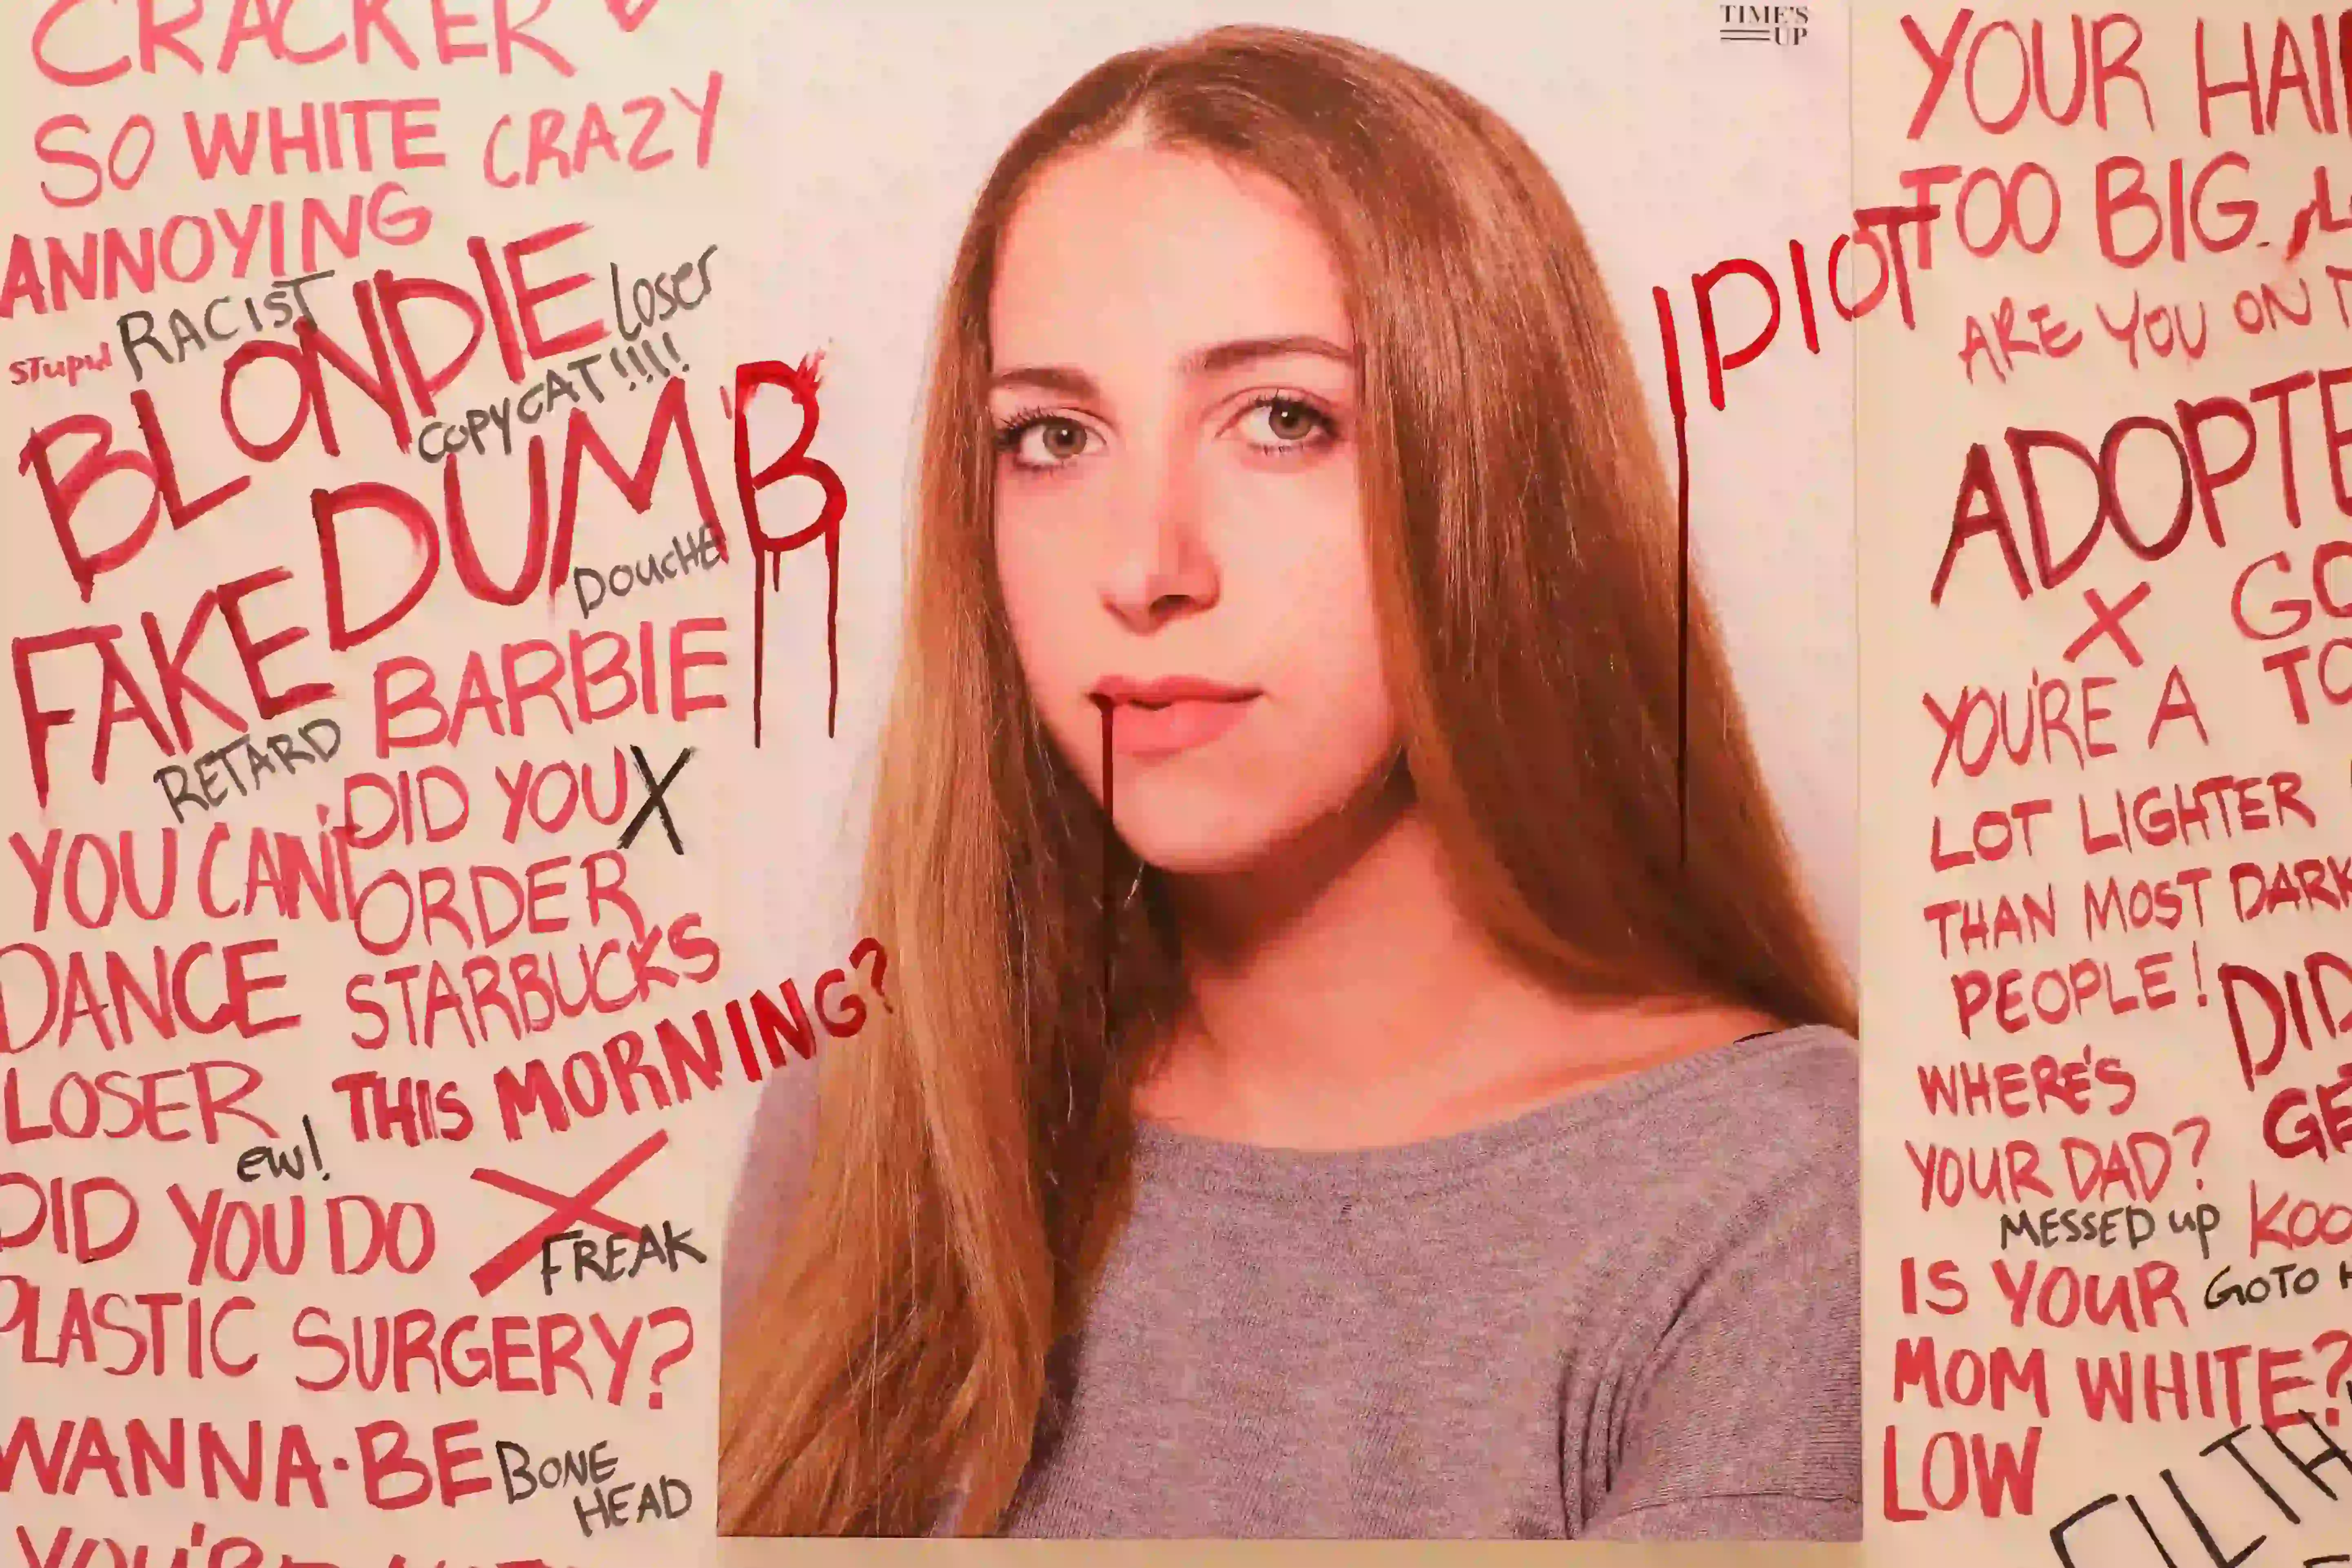 CRACKER
SO WHITE CRAZY
ANNOYING
stupid RACIST
BLONDIE loser
COPYCAT!!!!
FAKE DUMB
DOUCHE
RETARD BARBIE
YOU CAN'T
DANCE
LOSER
DID YOU X
ORDER
STARBUCKS
THIS MORNING?
ew!
DID YOU DO X
FREAK
PLASTIC SURGERY?
WANNA-BE BONE
HEAD
YOU'RE
TIME'S
UP
IDIOT
YOUR HAIR
TOO BIG
ARE YOU ON
ADOPTE
X GO
TO
YOU'RE A
LOT LIGHTER
THAN MOST DARK
PEOPLE!
DID
GE
WHERE'S
YOUR DAD?
MESSED up KOO
IS YOUR GO TO H
MOM WHITE?
LOW
FILTH